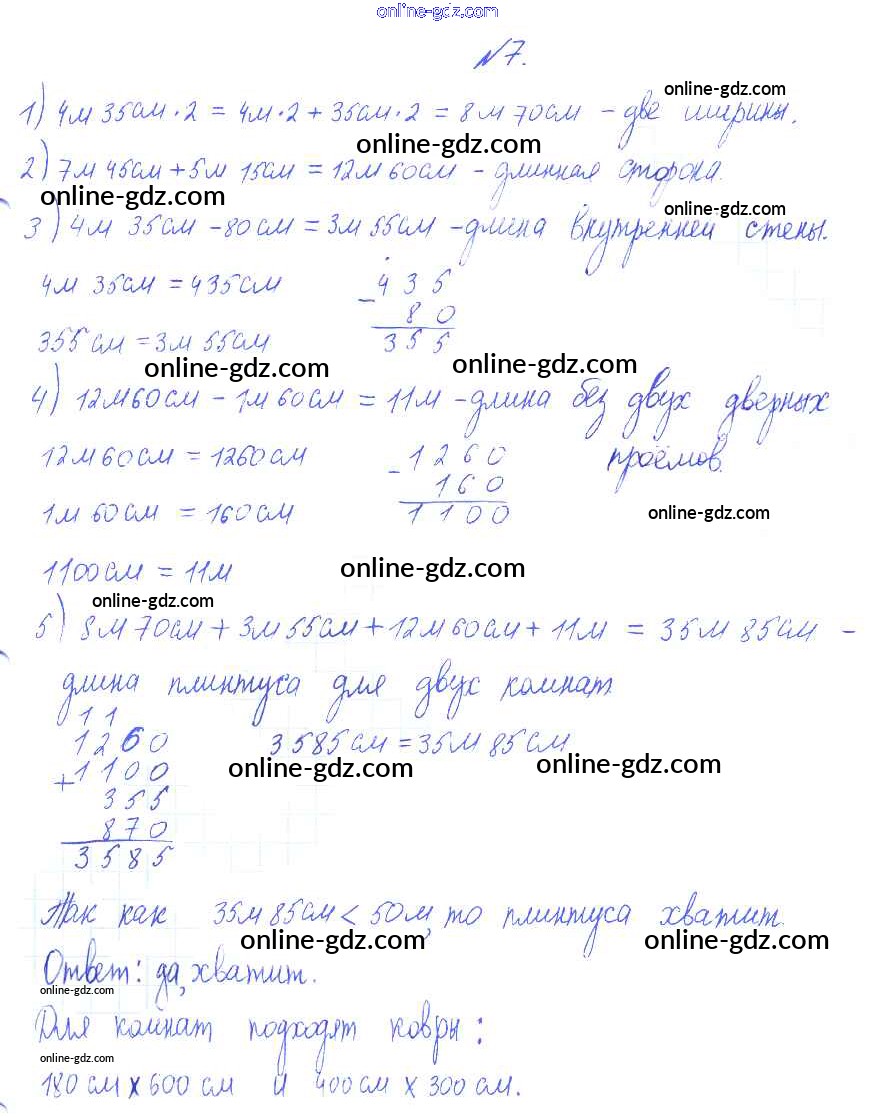 online-gdz.com
№7.
online-gdz.com
1) 4м 35см·2 = 4м·2 + 35см·2 = 8м 70см – две ширины.
online-gdz.com
2) 7м 45см + 5м 15см = 12м 60см – длинная сторона.
online-gdz.com
online-gdz.com
3) 4м 35см – 80см = 3м 55см – длина внутренней стены.
4м 35см = 435см
– 435
80
355
355см = 3м 55см
online-gdz.com
online-gdz.com
4) 12м60см – 1м 60см = 11м – длина без двух дверных
проёмов.
12м 60см = 1260см
– 1260
160
1100
1м 60см = 160см
online-gdz.com
1100см = 11м
online-gdz.com
online-gdz.com
5) 8м 70см + 3м 55см + 12м 60см + 11м = 35м 85см –
длина плинтуса для двух комнат
11
1260
+ 1100
355
870
3585
3585см = 35м 85см
online-gdz.com
online-gdz.com
Так как 35м 85см < 50м, то плинтуса хватит.
online-gdz.com
online-gdz.com
Ответ: да, хватит.
online-gdz.com
Для комнат подходят ковры:
online-gdz.com
180 см х 600 см и 400см х 300 см.